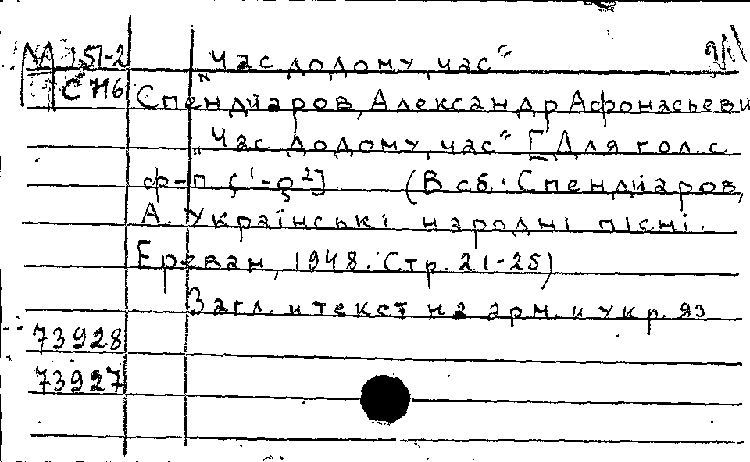 МА 151-2 „Час додому, час“
С 716
Спендиаров, Александр Афонасьеви
„Час додому, час“ [Для гол. с
ф-п. ς¹-ς²] (В сб.: Спендиаров,
А. Українські народні пісні.
Ереван, 1948. Стр. 21-25)
Загл. и текст на арм. и укр. яз
73928
73927